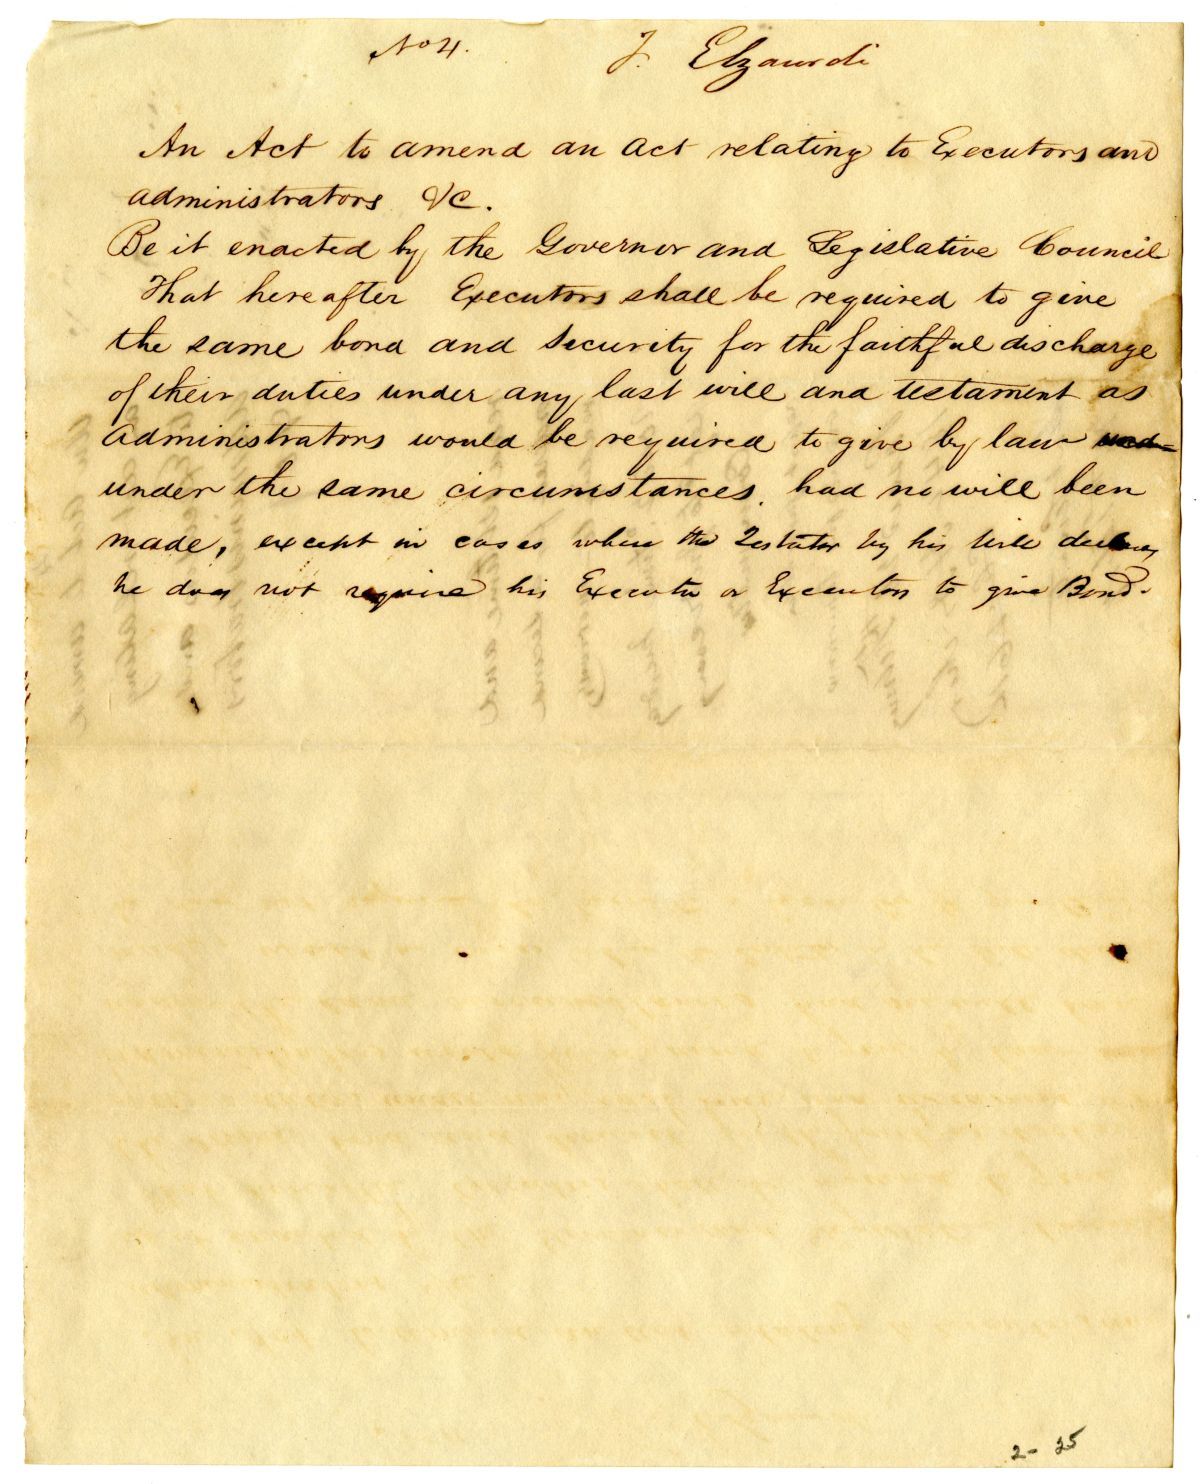 No 4. J. Elzaurdi
An Act to amend an act relating to Executors and
administrators &C.
Be it enacted by the Governor and Legislative Council
That hereafter Executors shall be required to give
the same bond and security for the faithful discharge
of their duties under any last will and testament as
administrators would be required to give by law und
under the same circumstances, had no will been
made, except in cases where the Testator by his will declares
he does not require his Executor or Executors to give Bond.
2-25